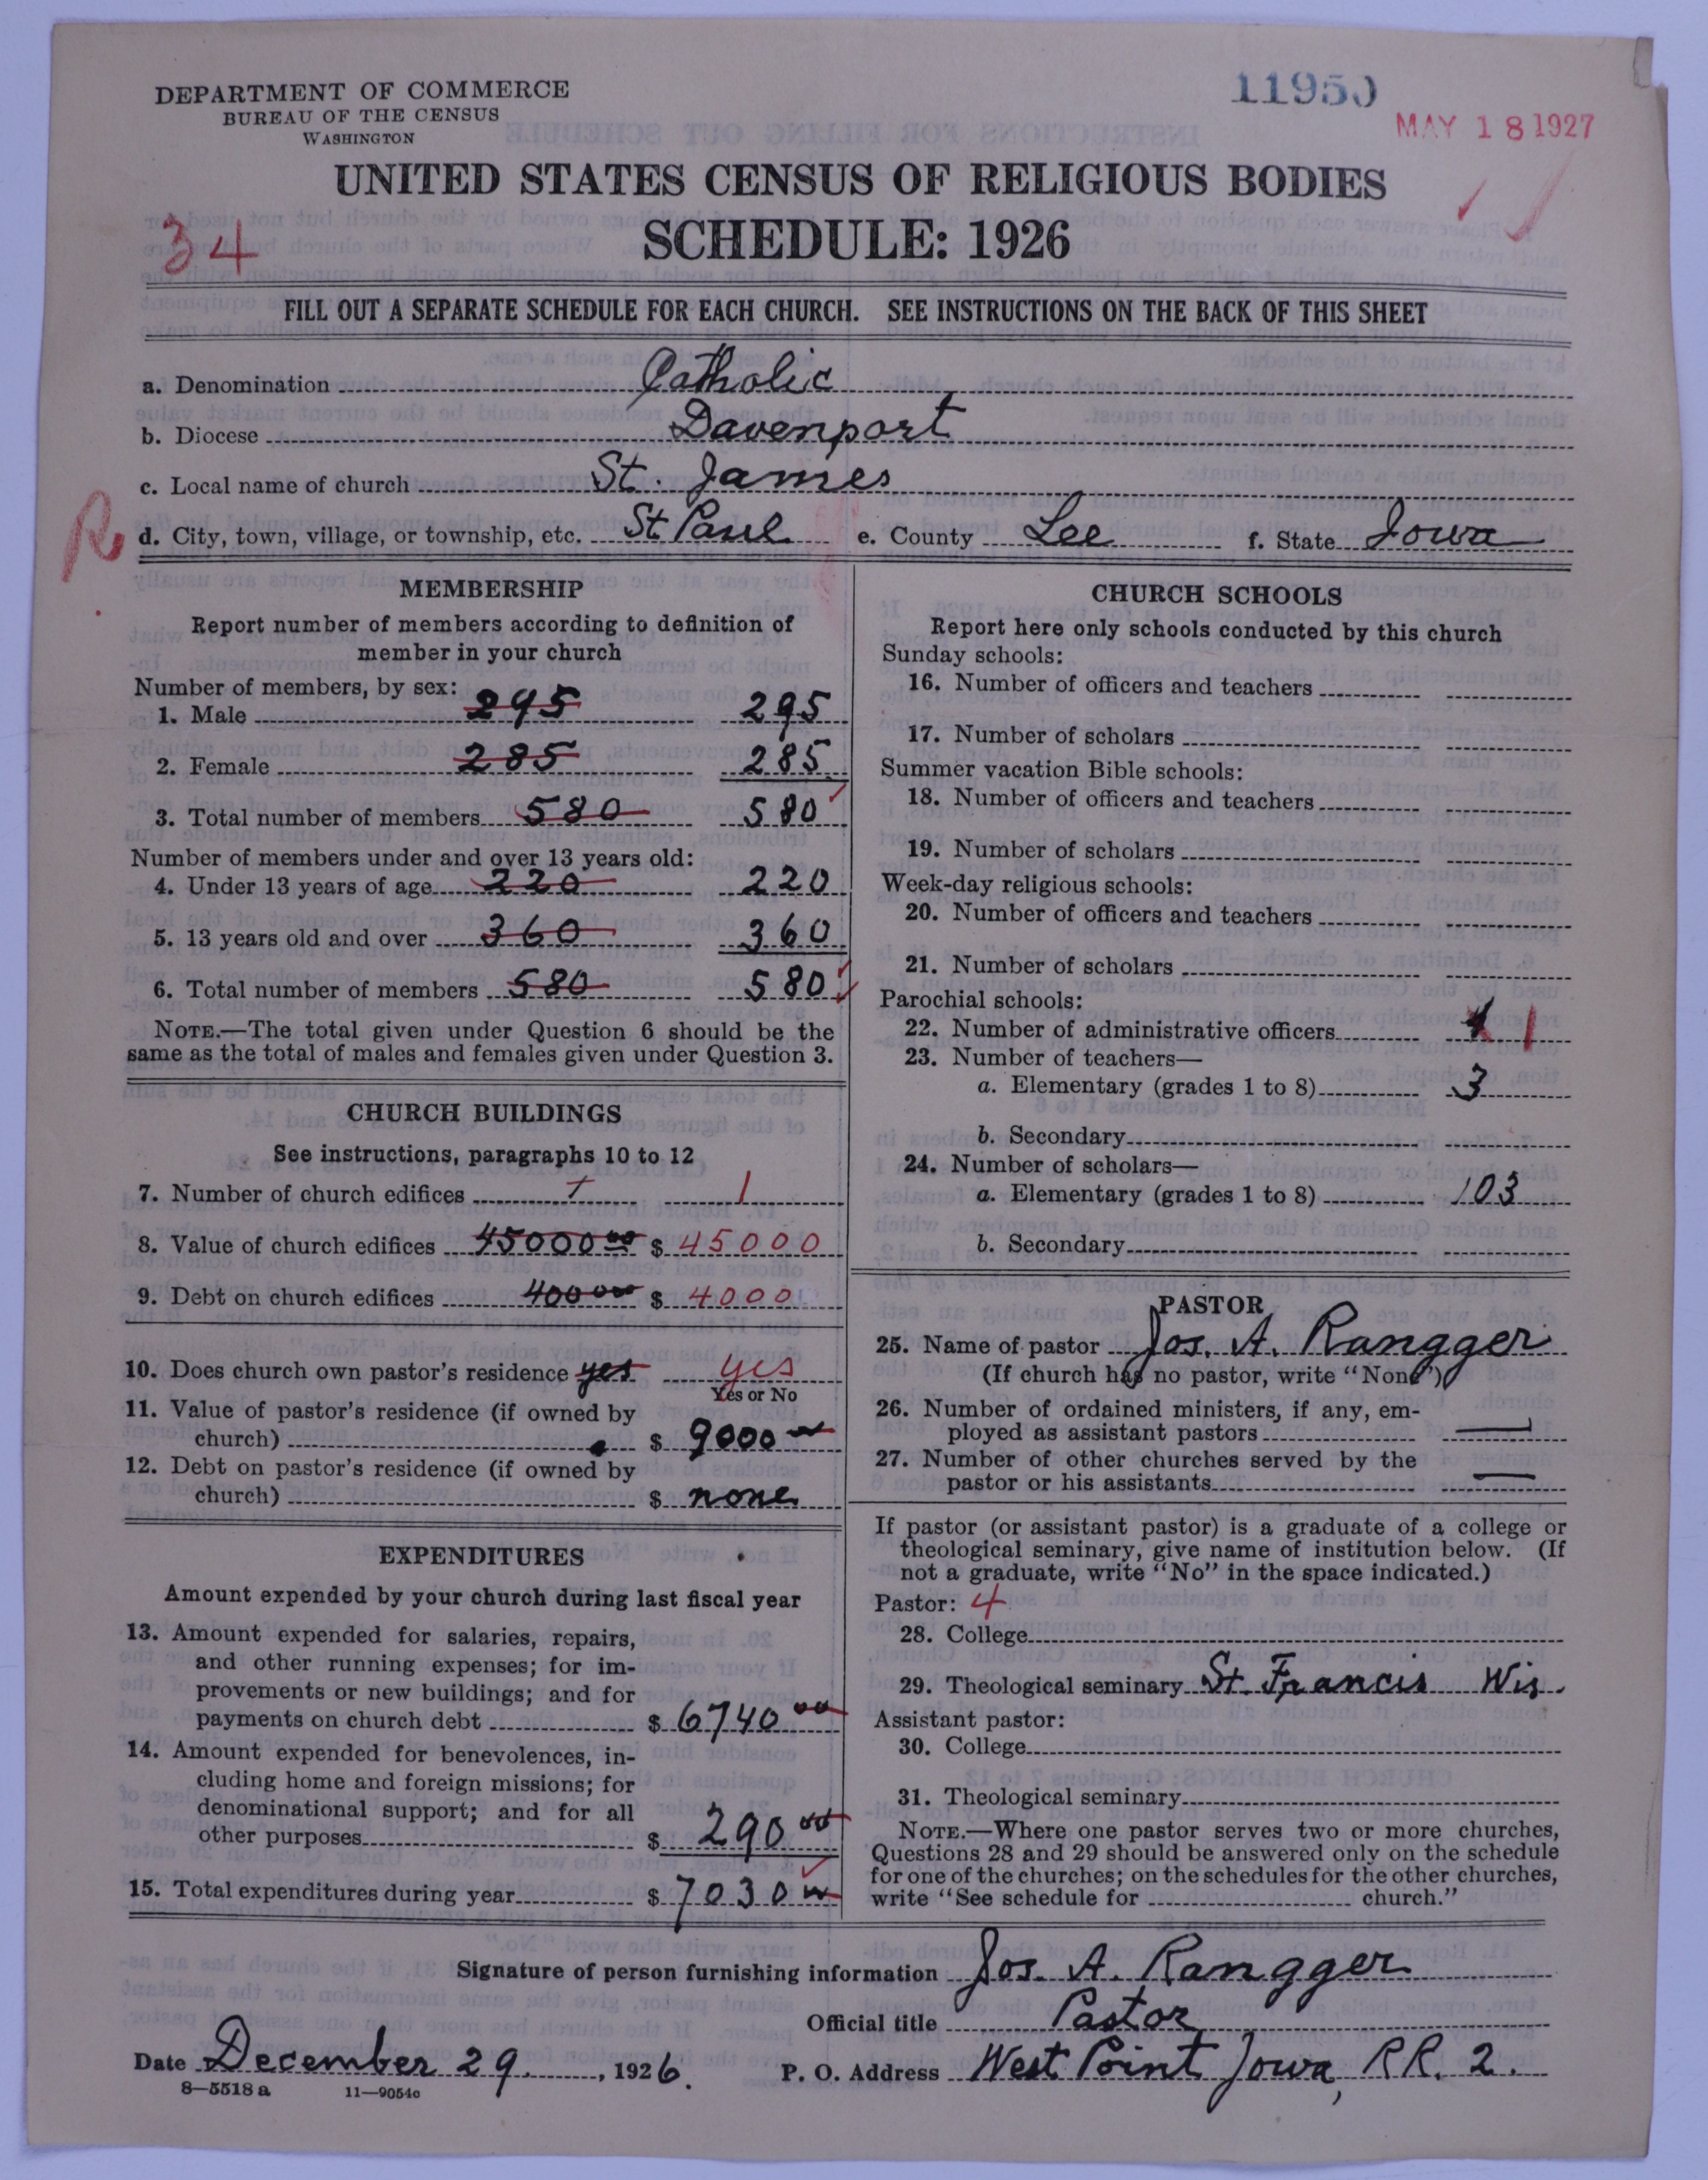 DEPARTMENT OF COMMERCE
BUREAU OF THE CENSUS
WASHINGTON
11950
MAY 18 1927
UNITED STATES CENSUS OF RELIGIOUS BODIES
SCHEDULE: 1926
34
FILL OUT A SEPARATE SCHEDULE FOR EACH CHURCH. SEE INSTRUCTIONS ON THE BACK OF THIS SHEET
a. Denomination Catholic
b. Diocese Davenport
c. Local name of church St. James
R d. City, town, village, or township, etc. St Paul e. County Lee f. State Iowa
MEMBERSHIP
Report number of members according to definition of
member in your church
Number of members, by sex:
1. Male 295 295
2. Female 285 285
3. Total number of members 580 580
Number of members under and over 13 years old:
4. Under 13 years of age 220 220
5. 13 years old and over 360 360
6. Total number of members 580 580
NOTE.—The total given under Question 6 should be the
same as the total of males and females given under Question 3.
CHURCH BUILDINGS
See instructions, paragraphs 10 to 12
7. Number of church edifices 1 1
8. Value of church edifices 45000 00 $ 45000
9. Debt on church edifices 400 00 $ 4000
10. Does church own pastor's residence yes yes
Yes or No
11. Value of pastor's residence (if owned by
church) $ 9000
12. Debt on pastor's residence (if owned by
church) $ none
EXPENDITURES
Amount expended by your church during last fiscal year
13. Amount expended for salaries, repairs,
and other running expenses; for im-
provements or new buildings; and for
payments on church debt $ 6740 00
14. Amount expended for benevolences, in-
cluding home and foreign missions; for
denominational support; and for all
other purposes $ 290 00
15. Total expenditures during year $ 7030
CHURCH SCHOOLS
Report here only schools conducted by this church
Sunday schools:
16. Number of officers and teachers
17. Number of scholars
Summer vacation Bible schools:
18. Number of officers and teachers
19. Number of scholars
Week-day religious schools:
20. Number of officers and teachers
21. Number of scholars
Parochial schools:
22. Number of administrative officers 1
23. Number of teachers—
a. Elementary (grades 1 to 8) 3
b. Secondary
24. Number of scholars—
a. Elementary (grades 1 to 8) 103
b. Secondary
PASTOR
25. Name of pastor Jos. A. Rangger
(If church has no pastor, write "None")
26. Number of ordained ministers, if any, em-
ployed as assistant pastors —
27. Number of other churches served by the
pastor or his assistants —
If pastor (or assistant pastor) is a graduate of a college or
theological seminary, give name of institution below. (If
not a graduate, write "No" in the space indicated.)
Pastor: 4
28. College
29. Theological seminary St. Francis Wis.
Assistant pastor:
30. College
31. Theological seminary
NOTE.—Where one pastor serves two or more churches,
Questions 28 and 29 should be answered only on the schedule
for one of the churches; on the schedules for the other churches,
write "See schedule for church."
Signature of person furnishing information Jos. A. Rangger
Official title Pastor
Date December 29, 1926. P. O. Address West Point Iowa, RR. 2.
8—5518 a 11—9054c